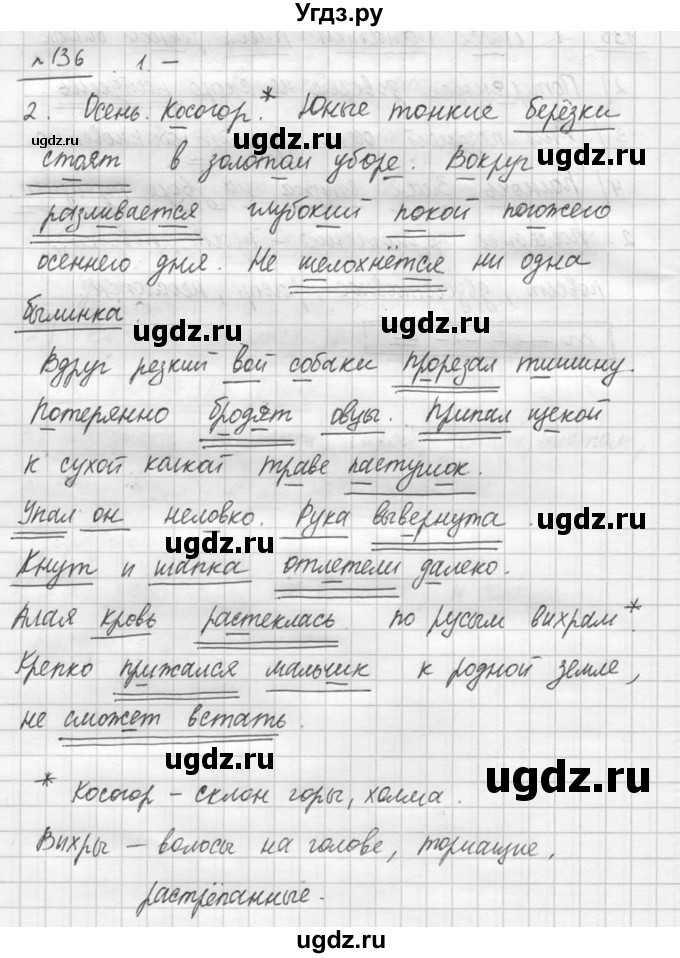 Угдз.ру
№136 1. –
2. Осень. Косогор.* Юные тонкие берёзки
ugdz.ru ugdz.ru
стоят в золотом уборе. Вокруг
разливается глубокий покой погожего
осеннего дня. Не шелохнётся ни одна
былинка.
ugdz.ru ugdz.ru
Вдруг резкий вой собаки прорезал тишину.
Потерянно бродят овцы. Припал щекой
к сухой колкой траве пастушок.
Упал он неловко. Рука вывернута.
ugdz.ru ugdz.ru
Кнут и шапка отлетели далеко.
Алая кровь растеклась по русым вихрам*.
Крепко прижался мальчик к родной земле,
не сможет встать.
ugdz.ru ugdz.ru
* Косогор – склон горы, холма.
Вихры – волосы на голове, торчащие,
растрёпанные.
ugdz.ru